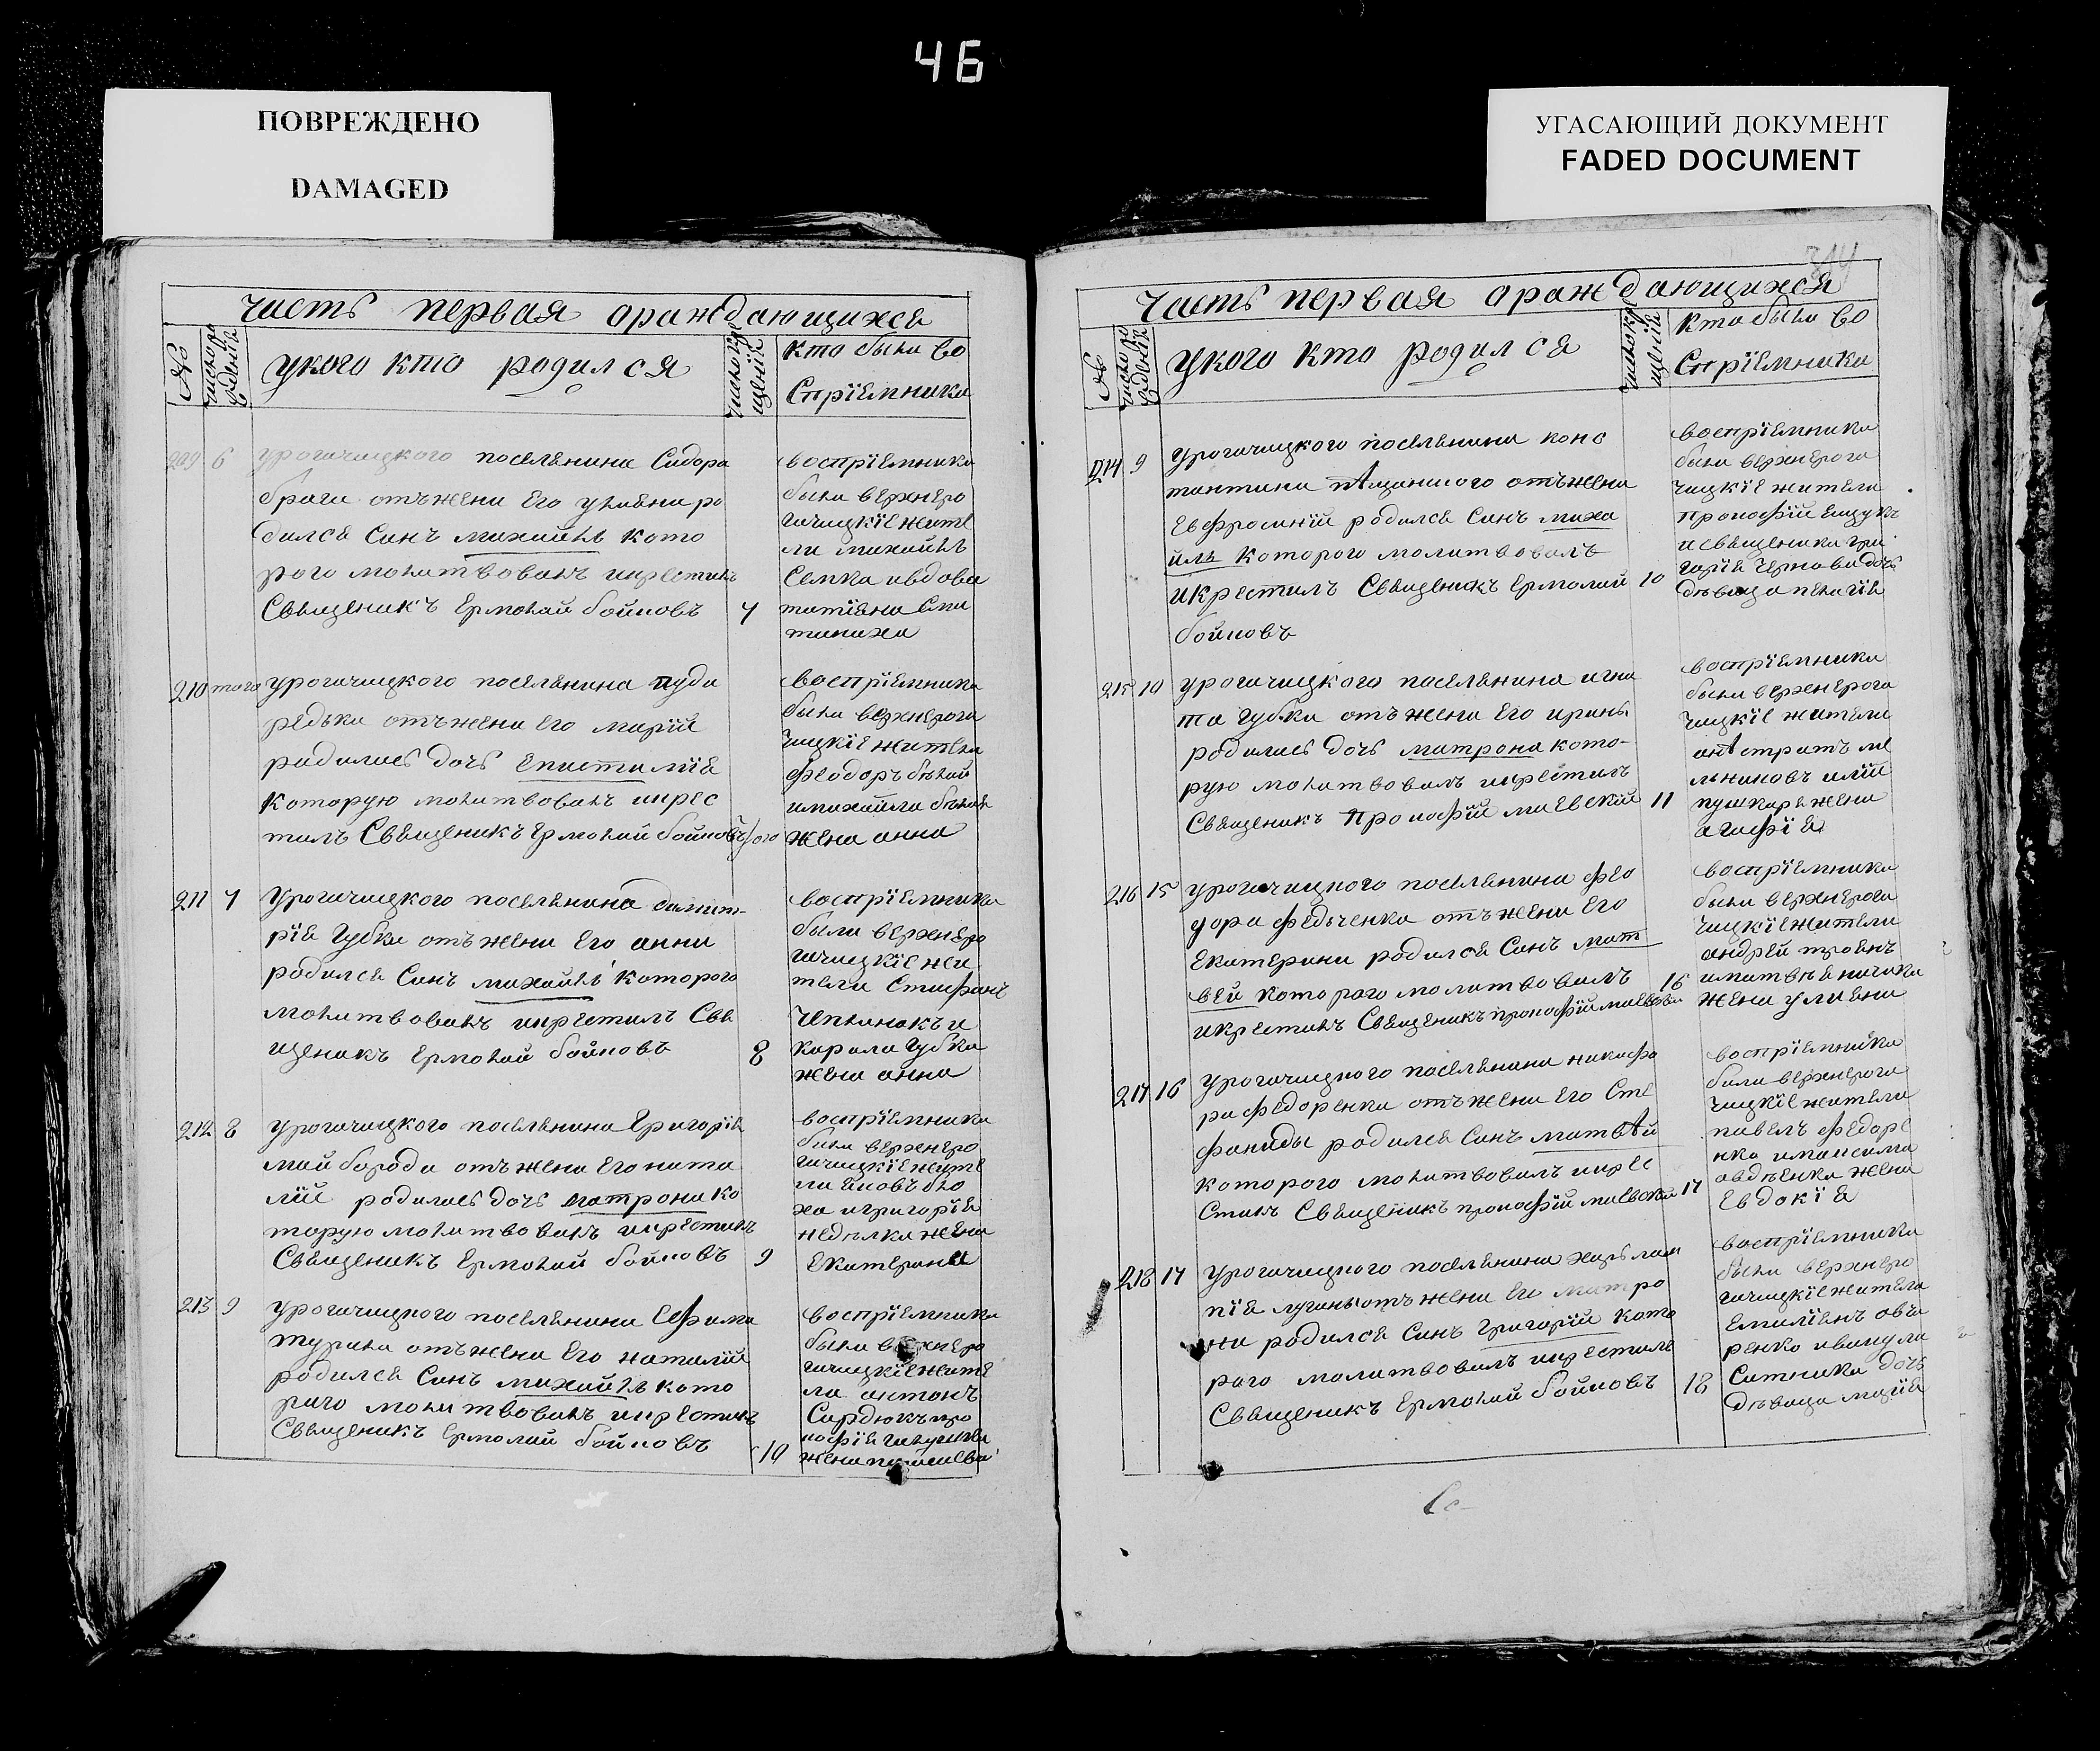 46
ПОВРЕЖДЕНО
DAMAGED
УГАСАЮЩИЙ ДОКУМЕНТ
FADED DOCUMENT
часть первая ораждающихся
№
укого кто родился
кто были во
спрїемники
209 6 урогачицкого поселянина Сидора
браги отъ жени Его улияни ро
дился Синъ михаилъ кото
рого молитвовалъ икрестилъ
Священикъ Ермолай бойновъ 7
воспрїемники
были верхнеро
гачицкїе жите
ли михаилъ
татїяна
210 того урогачицкого поселянина
редьки отъ жени Его марїи
родилась дочь Епистимїя
которую молитвовалъ икрес
тилъ Священикъ Ермолай бойновъ
воспрїемники
были верхнерога
чицкїе жители
феодоръ белай
имихаила белая
жена анна
211 7 Урогачицкого поселянина димит
рїя Губки отъ жени Его анни
родился Синъ михаилъ которого
молитвовалъ икрестилъ Свя
щеникъ Ермолай бойновъ 8
воспрїемники
были верхнеро
гачицкїе жи
тели Стефанъ
и
кирила Губки
жена анна
212 8 Урогачицкого поселянина Григорїя
май бороди отъ жени Его ната
лїи родилась дочь матрона ко
торую молитвовалъ икрестилъ
Священикъ Ермолай бойновъ 9
воспрїемники
были верхнеро
гачицкїе жите
ли
ха игригорїя
недѣлки жена
Екатерина
213 9 урогачицкого поселянина Ефима
отъ жени Его наталїи
родился Синъ михаилъ кото
раго молитвовалъ икрестилъ
Священикъ Ермолай бойновъ 10
воспрїемники
были верхнеро
гачицкїе жите
ли антонъ
Сердюкъ про
жена
часть первая ораждающихся
№
укого кто родился
кто были во
спрїемники
214 9 Урогачицкого поселянина конс
тантина отъ жени
Евфросинїи родился Синъ миха
илъ которого молитвовалъ
икрестилъ Священикъ Ермолай 10
бойновъ
воспрїемники
были верхнерога
чицкїе жители
прокофїй
исвященика гри
горїя дочь
дѣвица пелагїя
215 10 урогачицкого поселянина игна
та Губки отъ жени Его ирины
родилась дочь матрона кото-
рую молитвовалъ икрестилъ
Священикъ прокофїй маевскїй 11
воспрїемники
были верхнерога
чицкїе жители
ме
льниковъ илїи
пушкаря жена
агафїя
216 15 урогачицкого поселянина фео
дора федченка отъ жени Его
Екатерини родился Синъ мат
вей которого молитвовалъ 16
икрестилъ Священикъ прокофїй маевски
воспрїемники
были верхнерога
чицкїе жители
андрей троянъ
иматвѣя
жена улияна
217 16 урогачицкого поселянина никифо
ра федоренка отъ жени Его Сте
фаниды родился Синъ матвѣй
которого молитвовалъ икрес
стилъ Священикъ прокофїй маевски 17
воспрїемники
были верхнерога
чицкїе жители
павелъ федоре
нко имаксима
авдѣенка жена
Евдокїя
218 17 урогачицкого поселянина харьлам
пїя отъ жени Ег матро
ни родился Синъ Григорїй кото
раго молитвовалъ икрестилъ
Священикъ Ермолай бойновъ 18
воспрїемники
были верхнеро
гачицкїе жители
Емилїянъ овча
ренко
Ситника дочь
дѣвица марїя